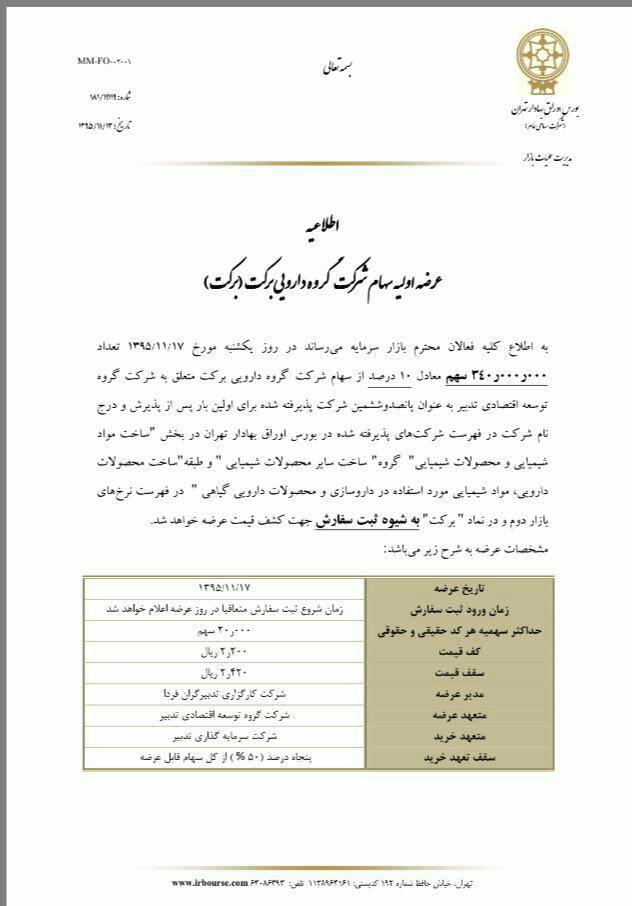 بسمه تعالی
MM-FO-۰۰۲-۰۰۱
شماره: ۱۸۱/
تاریخ: ۱۳۹۵/۱۱/۱۳
بورس اوراق بهادار تهران
(شرکت سهامی عام)
مدیریت عملیات بازار
اطلاعیه
عرضه اولیه سهام شرکت گروه دارویی برکت (برکت)
به اطلاع کلیه فعالان محترم بازار سرمایه می‌رساند در روز یکشنبه مورخ ۱۳۹۵/۱۱/۱۷ تعداد
۳۴۰ر۰۰۰ر۰۰۰ سهم معادل ۱۰ درصد از سهام شرکت گروه دارویی برکت متعلق به شرکت گروه
توسعه اقتصادی تدبیر به عنوان پانصدوششمین شرکت پذیرفته شده برای اولین بار پس از پذیرش و درج
نام شرکت در فهرست شرکت‌های پذیرفته شده در بورس اوراق بهادار تهران در بخش "ساخت مواد
شیمیایی و محصولات شیمیایی" گروه" ساخت سایر محصولات شیمیایی " و طبقه"ساخت محصولات
دارویی، مواد شیمیایی مورد استفاده در داروسازی و محصولات دارویی گیاهی " در فهرست نرخ‌های
بازار دوم و در نماد " برکت" به شیوه ثبت سفارش جهت کشف قیمت عرضه خواهد شد.
مشخصات عرضه به شرح زیر می‌باشد:
تاریخ عرضه ۱۳۹۵/۱۱/۱۷
زمان ورود ثبت سفارش زمان شروع ثبت سفارش متعاقبا در روز عرضه اعلام خواهد شد
حداکثر سهمیه هر کد حقیقی و حقوقی ۲۰ر۰۰۰ سهم
کف قیمت ۲ر۲۰۰ ریال
سقف قیمت ۲ر۴۲۰ ریال
مدیر عرضه شرکت کارگزاری تدبیرگران فردا
متعهد عرضه شرکت گروه توسعه اقتصادی تدبیر
متعهد خرید شرکت سرمایه گذاری تدبیر
سقف تعهد خرید پنجاه درصد (۵۰ %) از کل سهام قابل عرضه
تهران، خیابان حافظ شماره ۱۹۲ کدپستی: ۱۱۳۸۹۶۴۱۶۱ تلفن: ۶۴۰۸۶۴۹۳ www.irbourse.com